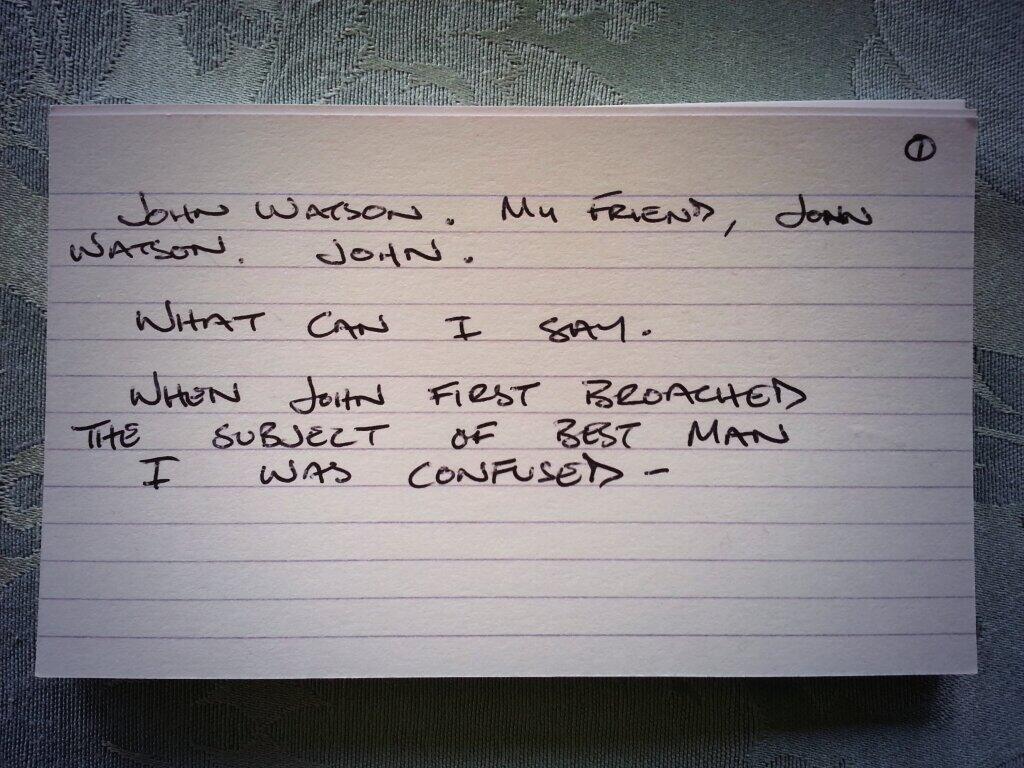 ①
JOHN WATSON. MY FRIEND, JOHN
WATSON. JOHN.
WHAT CAN I SAY.
WHEN JOHN FIRST BROACHED
THE SUBJECT OF BEST MAN
I WAS CONFUSED –